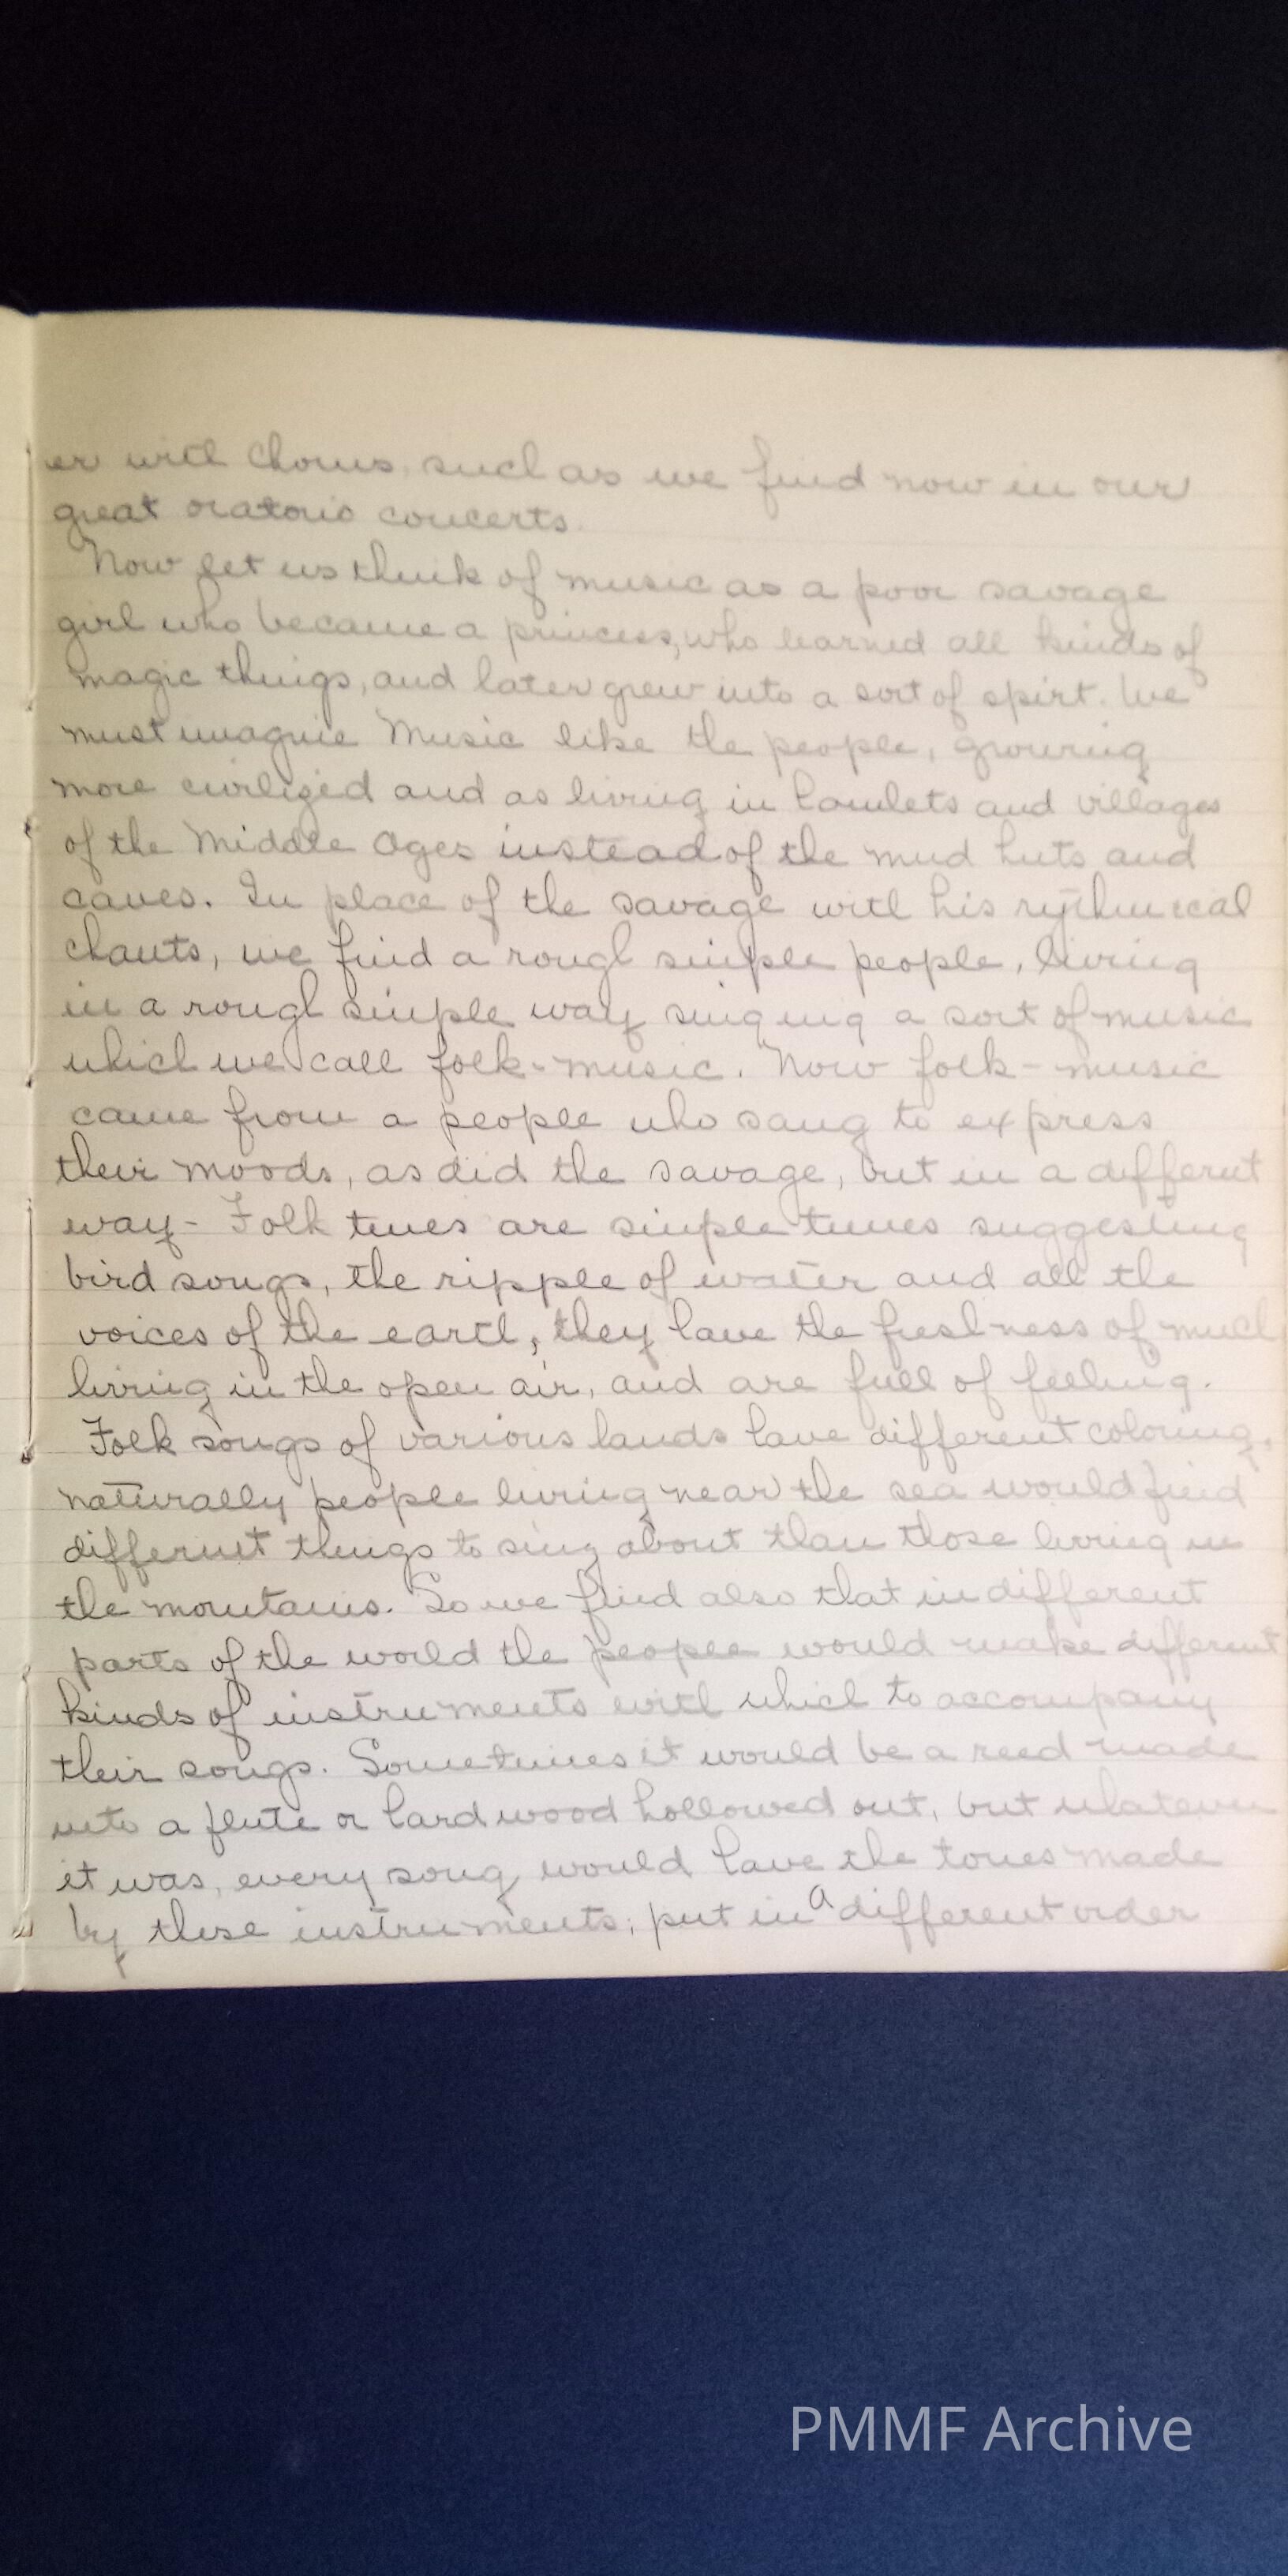 er with chorus, such as we find now in our
great oratorio concerts.
Now let us think of music as a poor savage
girl who became a princess, who learned all kinds of
magic things, and later grew into a sort of spirt. We
must imagine Music like the people, growing
more civilized and as living in hamlets and villages
of the Middle Ages instead of the mud huts and
caves. In place of the savage with his rythmical
chants, we find a rough simple people, living
in a rough simple way singing a sort of music
which we call folk-music. Now folk-music
came from a people who sang to express
their moods, as did the savage, but in a different
way - Folk tunes are simple tunes suggesting
bird songs, the ripple of water and all the
voices of the earth, they have the freshness of much
living in the open air, and are full of feeling.
Folk songs of various lands have different coloring,
naturally people living near the sea would find
different things to sing about than those living in
the mountains. So we find also that in different
parts of the world the people would make different
kinds of instruments with which to accompany
their songs. Sometimes it would be a reed made
into a flute or hard wood hollowed out, but whatever
it was, every song would have the tones made
by these instruments, put in a different order
PMMF Archive